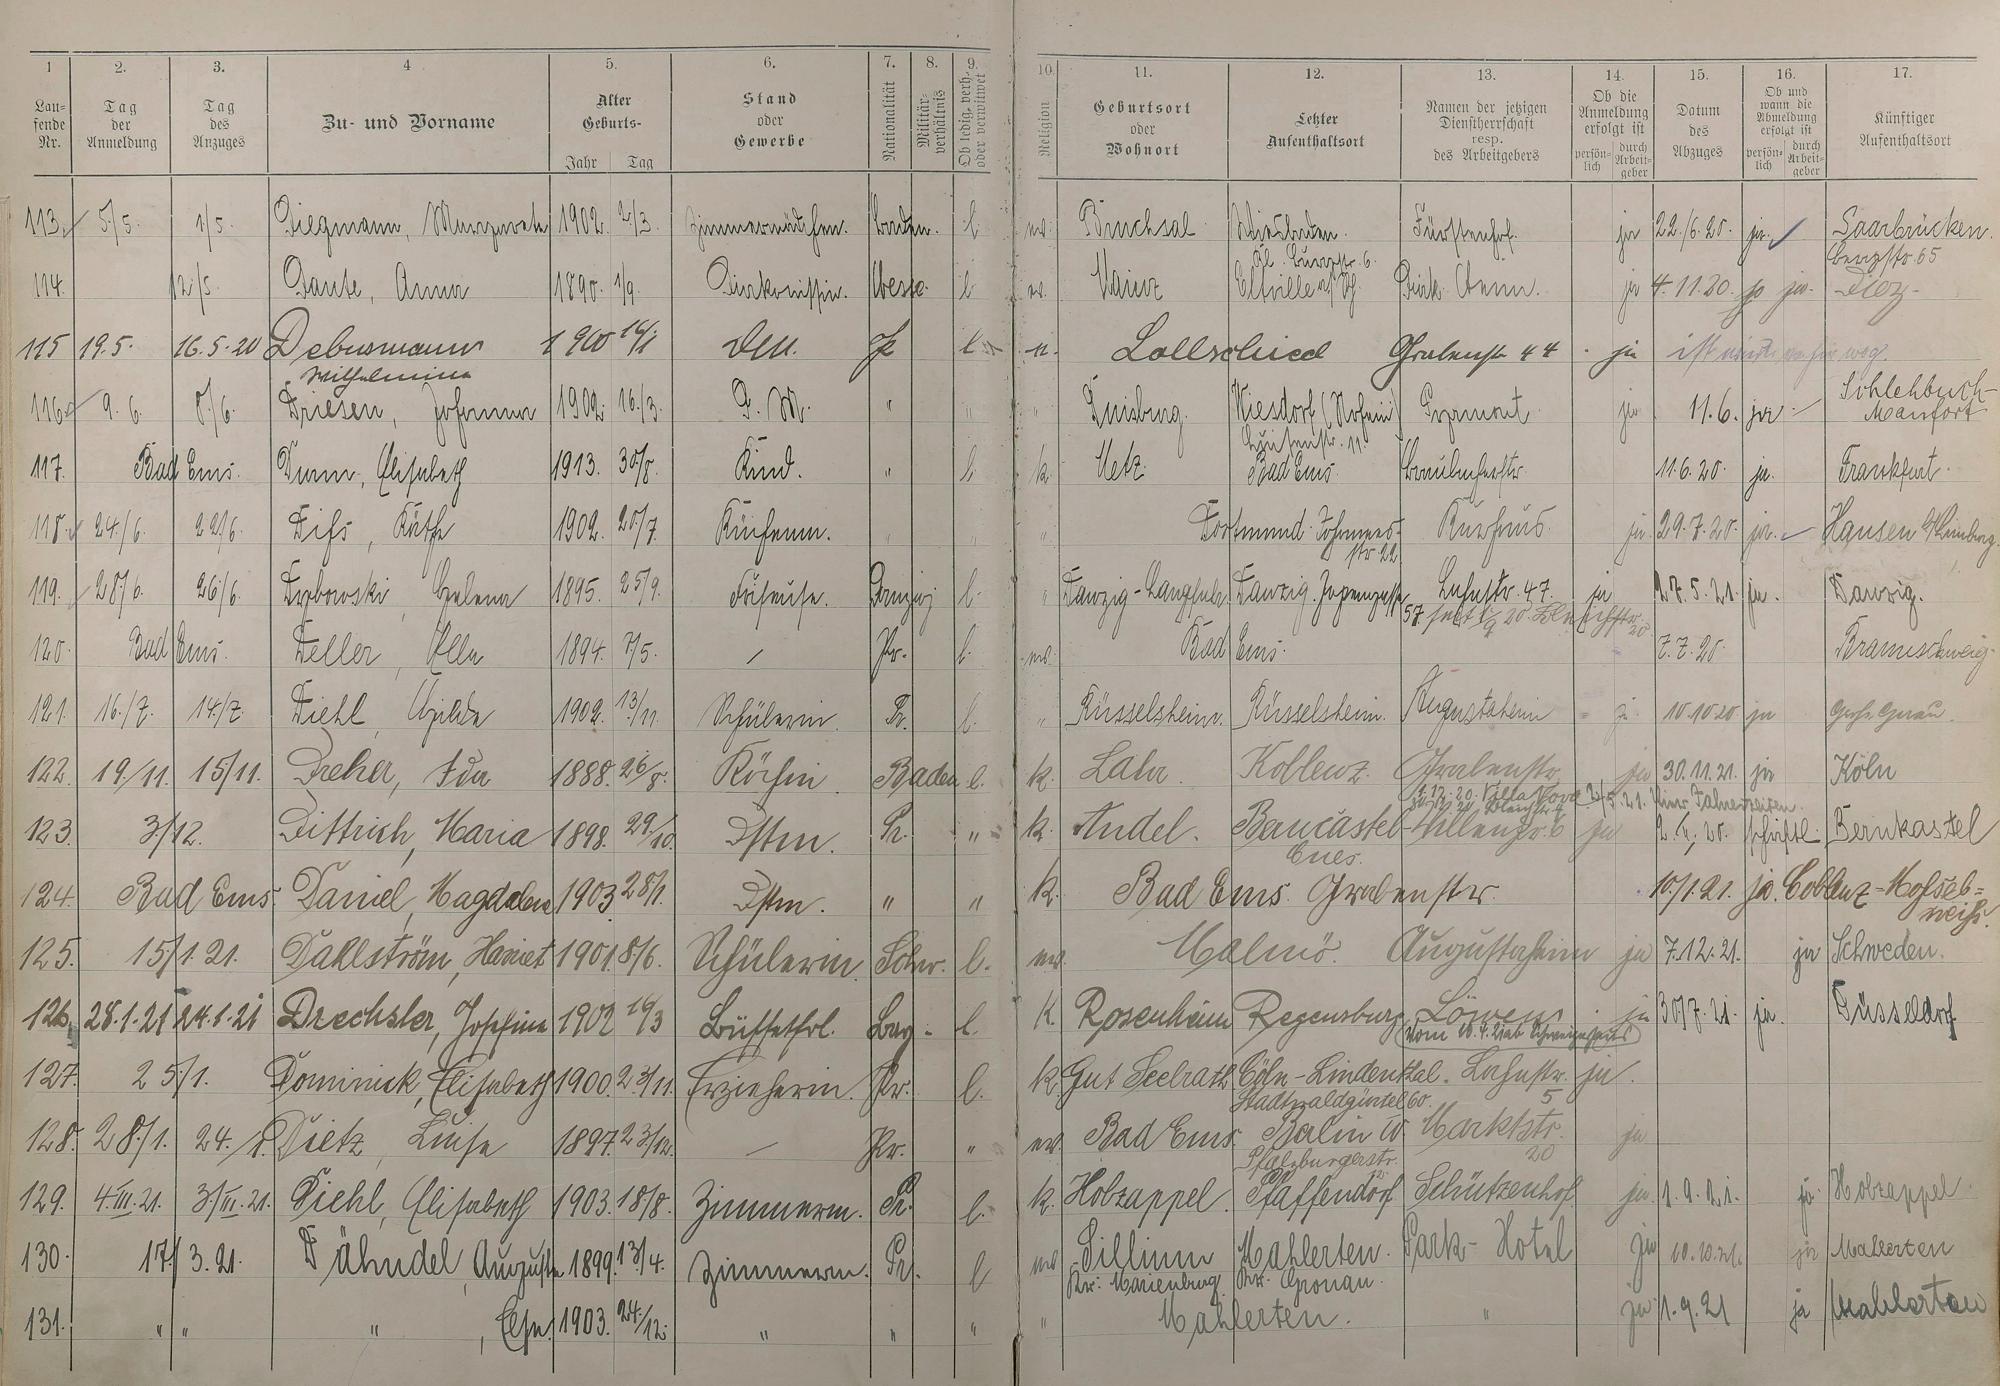 1 2. 3. 4 5. 6. 7. 8. 9. 10. 11. 12. 13. 14. 15. 16. 17.
Lau-fende Nr. Tag der Anmeldung Tag des Anzuges Zu- und Vorname Alter Geburts- Jahr Tag Stand oder Gewerbe Nationalität Militär-verhältnis Ob ledig, verh. oder verwitwet Religion Geburtsort oder Wohnort Letzter Aufenthaltsort Namen der jetzigen Dienstherrschaft resp. des Arbeitgebers Ob die Anmeldung erfolgt ist persön-lich durch Arbeit-geber Datum des Abzuges Ob und wann die Abmeldung erfolgt ist persön-lich durch Arbeit-geber Künftiger Aufenthaltsort
113. 5/5. 1/5. Diegmann, Margarete 1902. 2/3. Zimmermädchen. Baden. l. ev. Bruchsal Wiesbaden. Fürstenhof. ja 22./6.20. ja. Saarbrücken.
Kl. Burgstr. 6. Bergstr. 65
114. 12/5. Daute, Anna 1890. 1/9. Diakonissin. Hess. l. ev. Mainz Eltville a/Rh. Diak. Heim. ja 4.11.20. ja. Diez
115 19.5. 16.5.20 Debusmann 1900 Pr l. Lollschied Grabenstr 44 ja ist nicht mehr weg.
Wilhelmine
116. 9.6. 8./6. Driesen, Johanna 1902. 16./3. D. M. " " " Duisburg. Wiesdorf Pyrmont ja 11.6. ja Schlehbusch-Manfort
117. Bad Ems. Dumm, Elisabeth 1913. 30/8. Kind. " l k. Metz. Bad Ems. 11.6.20. ja. Frankfurt.
118. 24/6. 22/6. Difs, Käthe 1902. 20/7. " " Dortmund. Johannes-str 22 Kurhaus. ja. 29.7.20. ja. Hausen b/Limburg.
119. 28/6. 26/6. Dybowski, Helena 1895. 25/9. Friseuse. Danzig l. " Danzig-Langfuhr. Danzig. Jopengasse 57 Lahnstr. 47. ja 27.5.21. ja. Danzig.
120. Bad Ems. Deller, Ella 1894. 7/5. / Pr. l. ev. Bad Ems. 7.7.20. Braunschweig.
121. 16./7. 14/7. Diehl, Hilda 1902. 13/11. Schülerin. Pr. l. " Rüsselsheim. Rüsselsheim. Augustaheim 10.10.20. ja Groß Gerau.
122. 19/11. 15/11. Dreher, Ida 1888. 26/8. Köchin. Baden l. k. Lahr. Koblenz. Grabenstr. ja 30.11.21. ja Köln
123. 3/12. Dittrich, Maria 1898. 29/10. Dstm. Pr. " k. Andel. Bancastel-Cues. ja schriftl. Bernkastel
124. Bad Ems. Daniel, Magdalena 1903. 28/1. Dstm. " " k. Bad Ems. Grabenstr. 10./1.21. ja. Coblenz-Mosel=weiß.
125. 15/1.21. Dahlström, Harriet 1901. 8/6. Schülerin. Schw. l. ev. Malmö. Augustaheim ja 7.12.21. ja Schweden.
126. 28.1.21 24.1.21 Drechsler, Josefine 1902 Büffetfrl. Bay. l. K. Rosenheim Regensburg Löwen. ja 30/7.21. ja. Düsseldorf
127. 25/1. Dominick, Elisabeth 1900. 23/11. Erzieherin. Pr. l. k. Gut Seelrath Cöln-Lindenthal. Lahnstr. 5 ja.
Stadtwaldgürtel 60.
128. 28/1. 24./1. Dietz, Luise 1897. 23/12. — Pr. " ev. Bad Ems. Berlin W. Marktstr. 20 ja
Pfalzburgerstr.
129. 4.III.21. 3/III.21. Diehl, Elisabeth 1903. 18/8. Zimmerm. Pr. l. k. Holzappel. Pfaffendorf Schützenhof. ja. 1.9.21. ja. Holzappel.
130. 17./3.21. Dähndel, Auguste 1899. 13/4. Zimmerm. Pr. l ev Sillium Mahlerten. Park-Hotel ja 10.10.21. ja Mahlerten
Kr: Marienburg. Kr. Gronau.
131. " " " , Else. 1903. 24./12. " " " " Mahlerten. " ja 1.9.21 ja Mahlerten